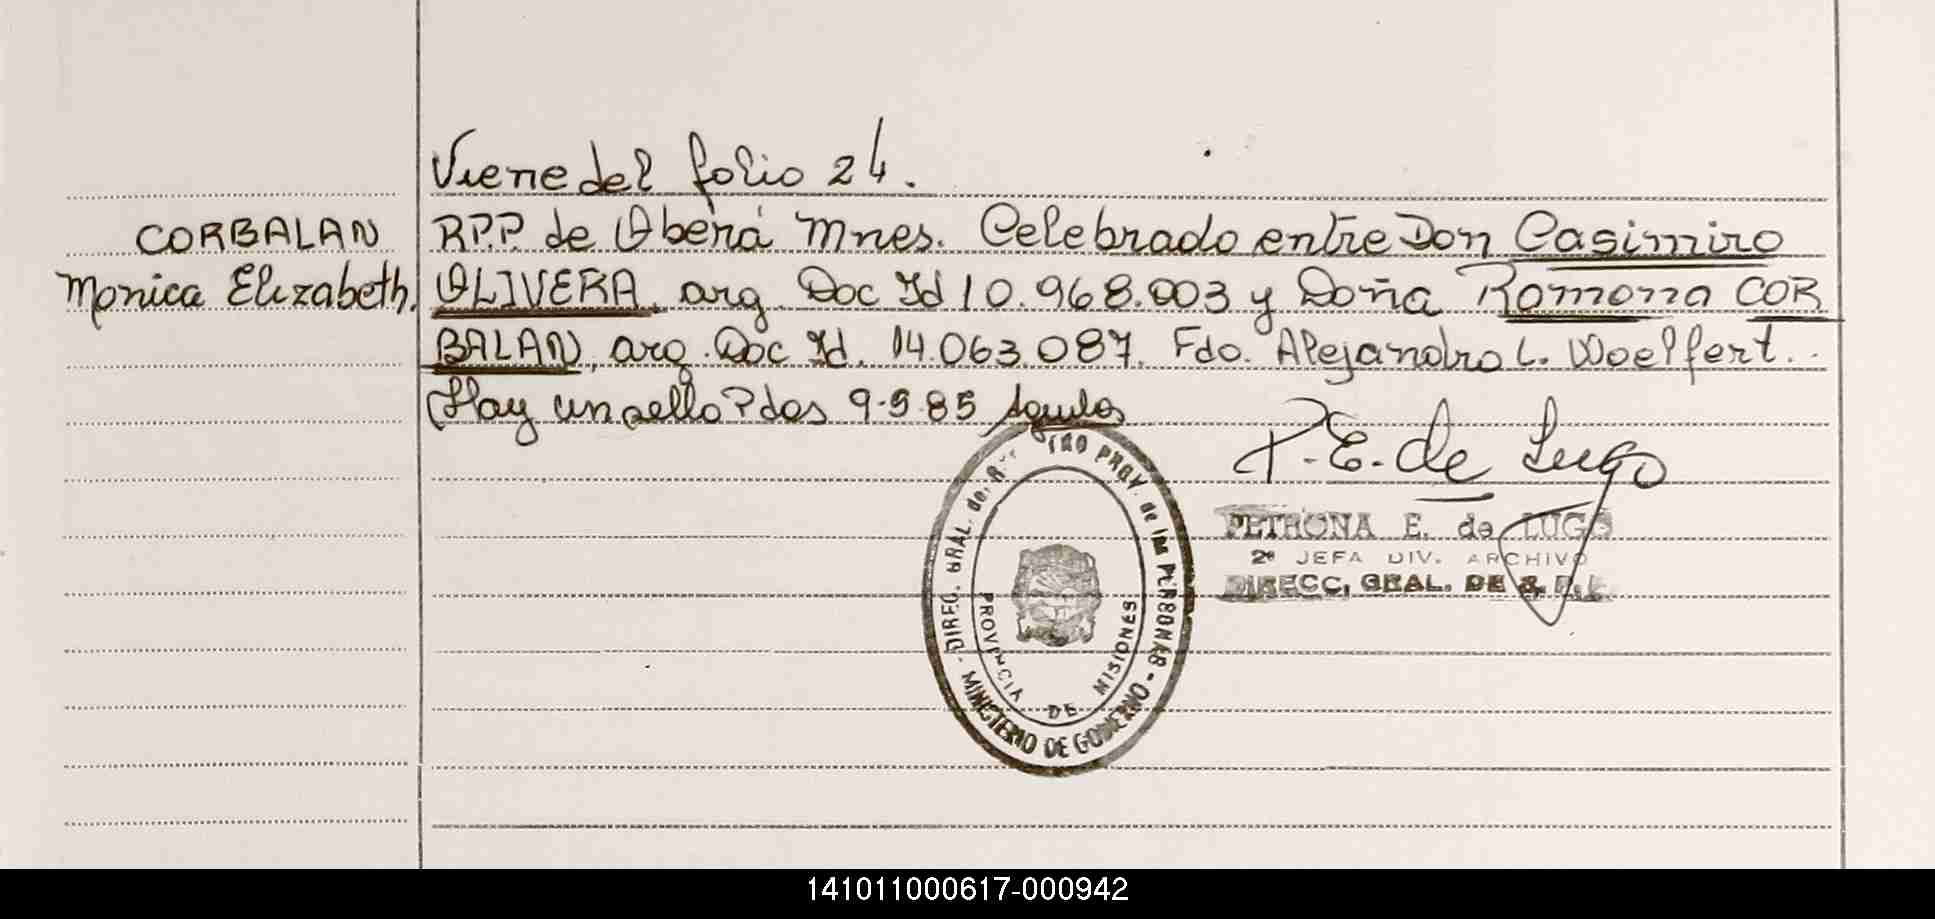 Viene del folio 24.
CORBALAN
Monica Elizabeth.
R.P.P. de Oberá Mnes. Celebrado entre Don Casimiro
OLIVERA, arg. Doc Id 10.968.003 y Doña Ramona COR
BALAN, arg. Doc Id. 14.063.087. Fdo. Alejandro L. Woelfert..
Hay un sello Pdas 9-5-85
P. E. de Lugo
PETRONA E. de LUGO
2ª JEFA DIV. ARCHIVO
DIRECC. GRAL. DE
DIREC. GRAL. del PROV. de las PERSONAS - MINISTERIO DE GOBIERNO -
PROVINCIA DE MISIONES
141011000617-000942